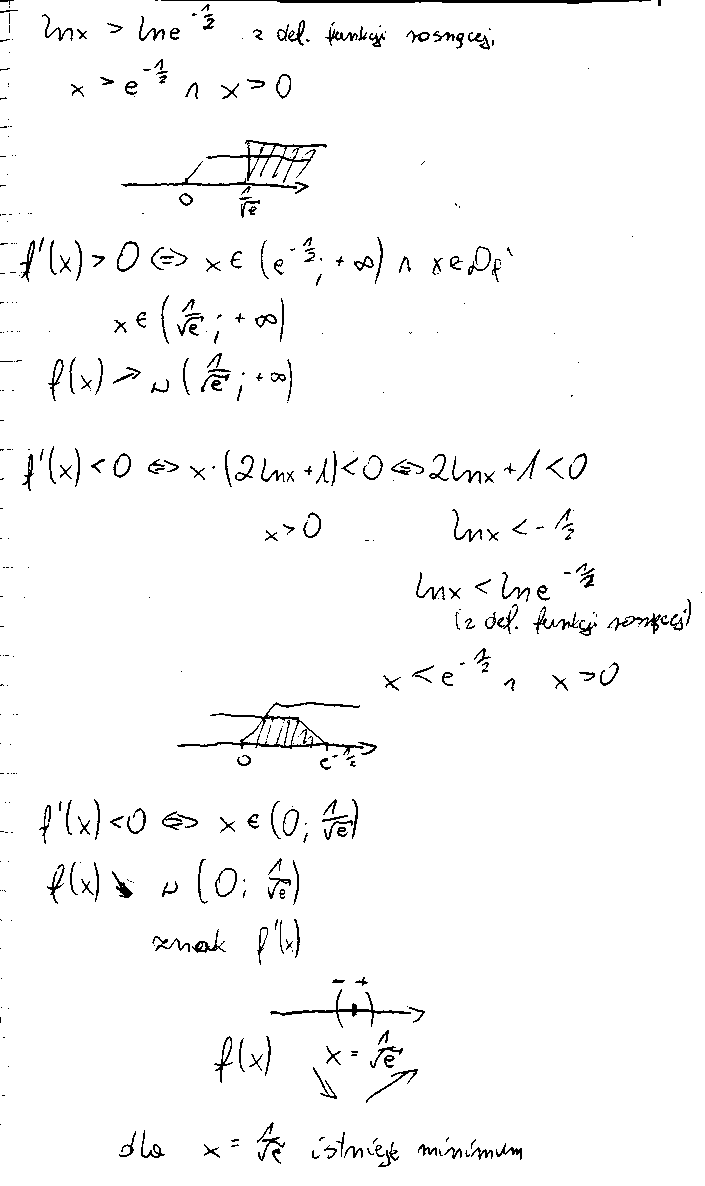 lnx > lne^{-1/2} z def. funkcji rosnącej.
x > e^{-1/2} ∧ x > 0
0 1/√e
f'(x) > 0 ⇔ x ∈ (e^{-1/2}; +∞) ∧ x ∈ D_{f'}
x ∈ (1/√e; +∞)
f(x) ↗ w (1/√e; +∞)
f'(x) < 0 ⇔ x·(2lnx + 1) < 0 ⇔ 2lnx + 1 < 0
x > 0 lnx < -1/2
lnx < lne^{-1/2}
(z def. funkcji rosnącej)
x < e^{-1/2} ∧ x > 0
0 e^{-1/2}
f'(x) < 0 ⇔ x ∈ (0; 1/√e)
f(x) ↘ w (0; 1/√e)
znak f'(x)
- +
f(x) x = 1/√e
↘ ↗
dla x = 1/√e istnieje minimum